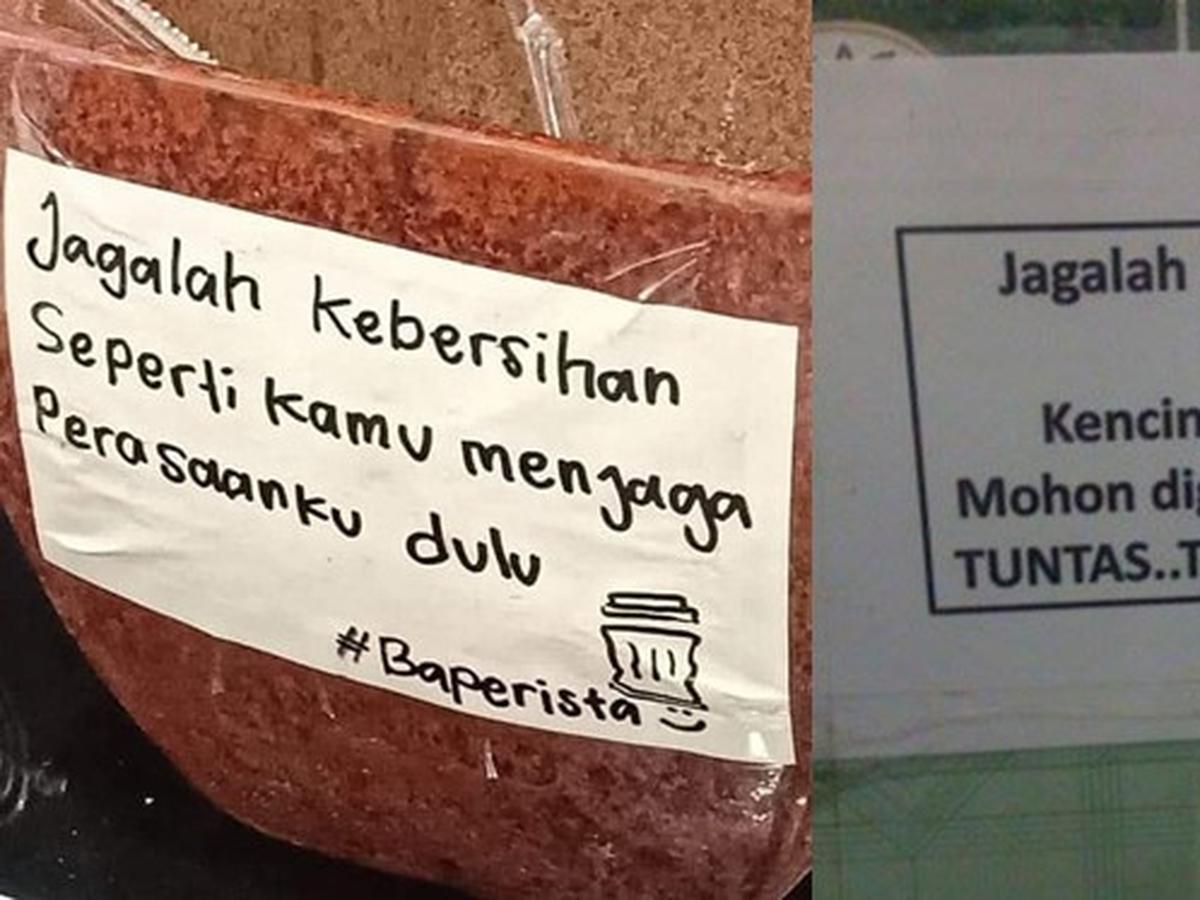 Jagalah kebersihan
Seperti kamu menjaga
Perasaanku dulu
#Baperista
Jagalah
Mohon
TUNTAS..